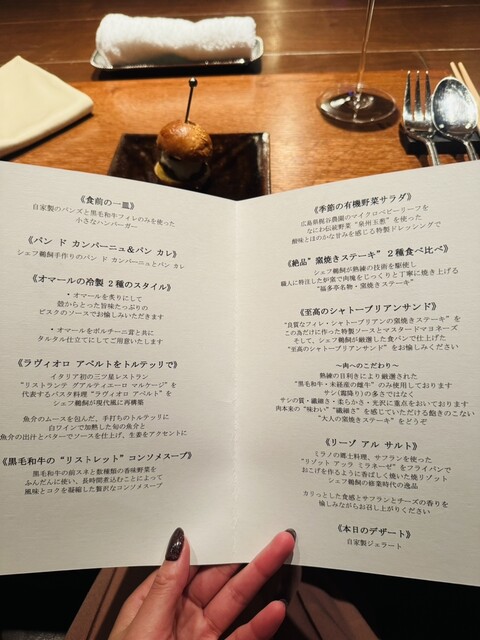 《食前の一皿》
自家製のバンズと黒毛和牛フィレのみを使った
小さなハンバーガー
《パン ド カンパーニュ＆パン カレ》
シェフ鵜飼手作りのパン ド カンパーニュとパン カレ
《オマールの冷製 2種のスタイル》
・オマールを炙りにして
殻からとった旨味たっぷりの
ビスクのソースでお愉しみいただきます
・オマールをポルチーニ茸と共に
タルタル仕立てにしてご用意いたします
《ラヴィオロ アペルトをトルテッリで》
イタリア初の三ツ星レストラン
"リストランテ グアルティエーロ マルケージ"を
代表するパスタ料理"ラヴィオロ アペルト"を
シェフ鵜飼が現代風に再構築
魚介のムースを包んだ、手打ちのトルテッリに
白ワインで加熱した旬の魚介と
魚介の出汁とバターでソースを仕上げ、生姜をアクセントに
《黒毛和牛の"リストレット"コンソメスープ》
黒毛和牛の前スネと数種類の香味野菜を
ふんだんに使い、長時間煮込むことによって
風味とコクを凝縮した贅沢なコンソメスープ
《季節の有機野菜サラダ》
広島県梶谷農園のマイクロベビーリーフを
なにわ伝統野菜"泉州玉葱"を使った
酸味とほのかな甘みを感じる特製ドレッシングで
《絶品"窯焼きステーキ"２種食べ比べ》
シェフ鵜飼が熟練の技術を駆使し
職人に特注した炉窯で肉塊をじっくりと丁寧に焼き上げる
"福多亭名物・窯焼きステーキ"
《至高のシャトーブリアンサンド》
"良質なフィレ・シャトーブリアンの窯焼きステーキ"を
この為だけに作った特製ソースとマスタードマヨネーズ
そして、シェフ鵜飼が厳選した食パンで仕上げた
"至高のシャトーブリアンサンド"をお愉しみください
～肉へのこだわり～
熟練の目利きにより厳選された
"黒毛和牛・未経産の雌牛"のみ使用しております
サシ(霜降り)の多さではなく
サシの質・繊細さ・柔らかさ・光沢に重点をおいております
肉本来の"味わい""繊細さ"を感じていただける飽きのこない
"大人の窯焼きステーキ"をどうぞ
《リーゾ アル サルト》
ミラノの郷土料理、サフランを使った
"リゾット アッラ ミラネーゼ"をフライパンで
おこげを作るように香ばしく焼いた焼リゾット
シェフ鵜飼の修業時代の逸品
カリっとした食感とサフランとチーズの香りを
愉しみながらお召し上がりください
《本日のデザート》
自家製ジェラート